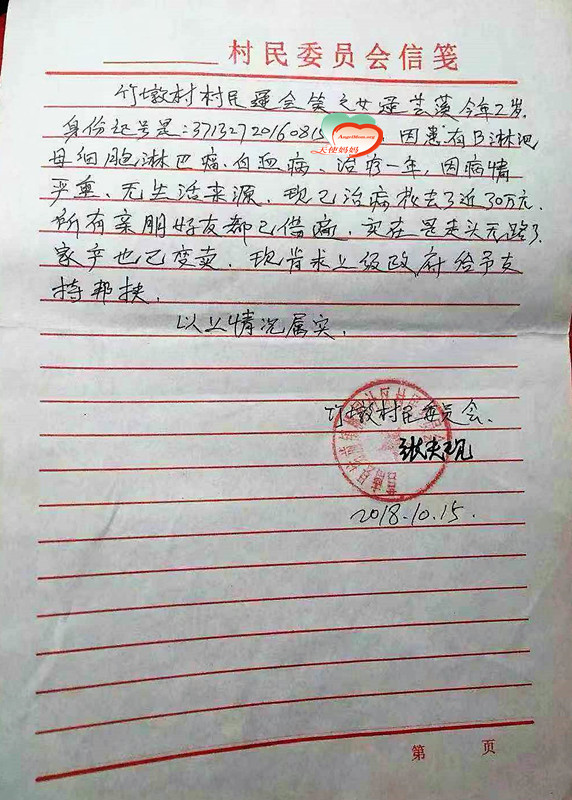 村民委员会信笺
竹墩村村民 会 之女 芸溪今年2岁.
身份证号是:37132720160815 因患有B淋巴
AngelMom.org
天使妈妈
母细胞淋巴瘤.白血病、治疗一年,因病情
严重、无生活来源.现已治病花去了近30万元.
所有亲朋好友都已借遍.实在是走头无路了
家产也已变卖.现肯求上级政府给予支
持帮扶.
以上情况属实.
竹墩村民委员会.
张
2018.10.15.
第 页